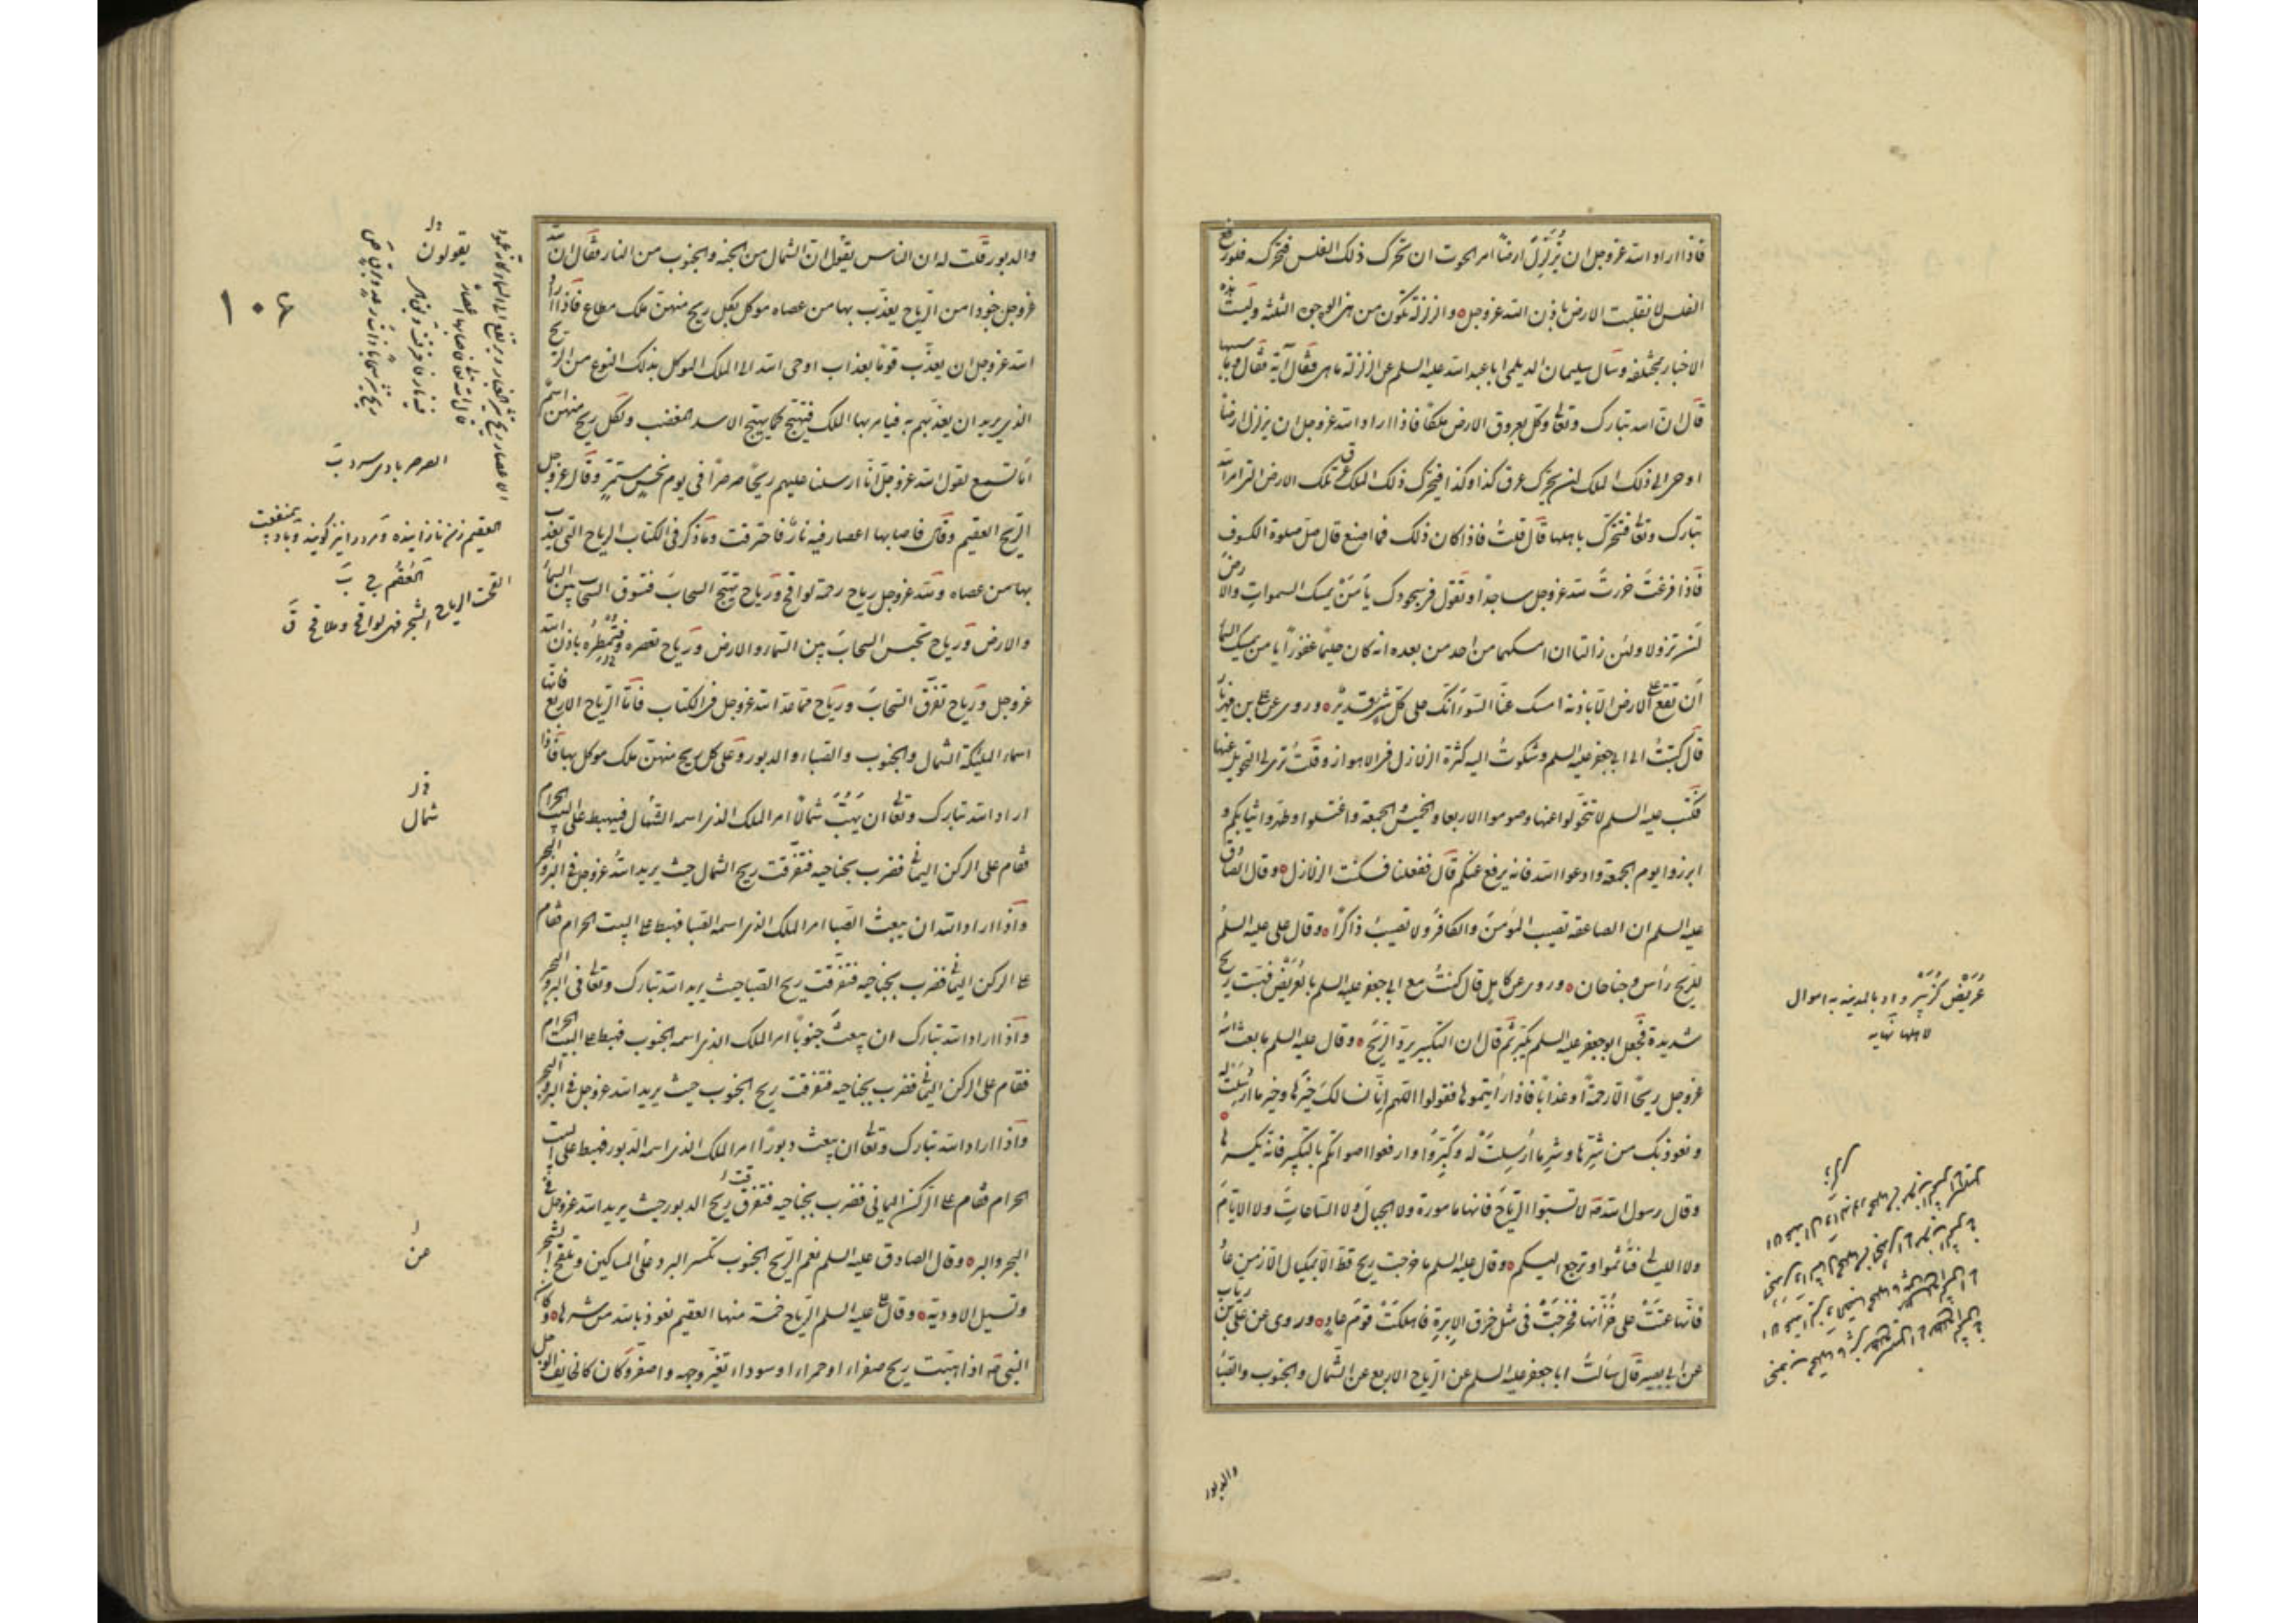 فاذا اراد الله عزوجل ان يُزَلزِلَ ارضاً امر الحوت ان تحرك ذلك الفلس فتحركه فلو رفع
الفلس لانقلبت الارض باذن الله عزوجل والزلزلة تكون من هذه الوجوه الثلثة وليست هذه
الاخبار بمختلفة وسأل سليمان الديلمى ابا عبدالله عليه السلم عن الزلزلة ما هى فقال آية فقال وما سببها
قال ان الله تبارك وتعالى وكل بعروق الارض ملكاً فاذا اراد الله عزوجل ان يزلزل ارضاً
اوحى الى ذلك الملك ان يحرك عرق كذا وكذا فيحرك ذلك الملك عرق تلك الارض التى امر الله
تبارك وتعالى فتتحرك باهلها قال قلت فاذا كان ذلك فما اصنع قال صل صلوة الكسوف
فاذا فرغتَ خررتَ لله عزوجل ساجداً وتقول فى سجودك يا مَنْ يمسك السموات والارض
اَنْ تزولا ولئن زالتا ان امسكهما من احد من بعده انه كان حليماً غفوراً يا من يمسك السماء
أن تقع على الارض الا باذنه امسك عنّا السوء انّك على كل شىء قدير وروى عن على بن مهزيار
قال كتبتُ الى ابى جعفر عليه السلم وشكوتُ اليه كثرة الزلازل فى الاهواز وقلت ترى لى التحويل عنها
فكتب عليه السلم لا تتحولوا عنها وصوموا الاربعا والخميس والجمعة واغتسلوا وطهروا ثيابكم و
ابرزوا يوم الجمعة وادعوا الله فانه يرفع عنكم قال ففعلنا فسكنت الزلازل وقال الصادق
عليه السلم ان الصاعقة تصيب المؤمنَ والكافرَ ولا تصيبُ ذاكراً وقال على عليه السلم
للريح رأس وجناحان وروى عن كامل قال كنتُ مع ابى جعفر عليه السلم بالعُرَيْض فهبت ريح
شديدة فجعل ابو جعفر عليه السلم يكبّر ثم قال ان التكبير يردّ الريحَ وقال عليه السلم ما بعث الله
عزوجل ريحاً الا رحمةً او عذاباً فاذا رأيتموها فقولوا اللهم انّا نسألك خيرَها وخير ما اُرسِلَتْ له
ونعوذ بك من شرِّها وشرِّ ما اُرسِلتْ له وكبّروا وارفعوا اصواتكم بالتكبير فانه يكسرها
وقال رسول الله صه لا تسبّوا الرياحَ فانها مامورة ولا الجبالَ ولا الساعاتِ ولا الايّامَ
ولا الليالى فتأثموا وترجع اليكم وقال عليه السلم ما خرجت ريح قط الا بمكيال الا زمن عاد
فانها عَتَتْ على خُزّانها فخرجَتْ فى مثل خرق الابرة فاهلكتْ قومَ عادٍ وروى عن على بن رياب
عن ابى بصير قال سألتُ ابا جعفر عليه السلم عن الرياح الاربع عن الشمال والجنوب والصبا
عُرَيْض كزُبَير واد بالمدينه به اموال
لاهلها نهايه
والدبور
والدبور قلت له ان الناس يقول ان الشمال من الجنة والجنوب من النار فقال ان لله
عزوجل جنودا من الرياح يعذب بها من عصاه موكل بكل ريح منهن ملك مطاع فاذا اراد
الله عزوجل ان يعذّب قوماً بعذاب اوحى الله الى الملك الموكل بذلك النوع من الريح
الذى يريد ان يعذبهم به فيامر بها الملك فتهيج كما يهيج الاسد المغضب ولكل ريح منهن اسم
اما تسمع لقول الله عزوجل انّا ارسلنا عليهم ريحاً صرصراً فى يوم نحس مستمرّ وقال عزوجل
الريح العقيم وقال فاصابها اعصار فيه نارٌ فاحترقت وما ذكر فى الكتاب الرياح التى يعذب
بها من عصاه ولله عزوجل رياح رحمة لواقح ورياح تهيّج السحابَ فتسوق السحاب بين السماء
والارض ورياح تحبس السحابَ بين السماء والارض ورياح تعصره فتُمْطِرُه باذن الله
عزوجل ورياح تفرّق السحابَ ورياح مما عدّ الله عزوجل فى الكتاب فامّا الرياح الاربع فانها
اسماء الملئكة الشمال والجنوب والصبا والدبور وعلى كل ريح منهنّ ملك موكل بها فاذا
اراد الله تبارك وتعالى ان يَهُبَّ شمالاً امر الملك الذى اسمه الشمال فيهبط على البيت الحرام
فقام على الركن اليمانى فضرب بجناحيه فتفرّقت ريح الشمال حيث يريد الله عزوجل فى البر والبحر
واذا اراد الله ان يبعث الصبا امر الملك الذى اسمه الصبا فهبط على البيت الحرام فقام
على الركن اليمانى فضرب بجناحيه فتفرّقت ريح الصبا حيث يريد الله تبارك وتعالى فى البر والبحر
واذا اراد الله تبارك ان يبعث جنوباً امر الملك الذى اسمه الجنوب فهبط على البيت الحرام
فقام على الركن اليمانى فضرب بجناحيه فتفرقت ريح الجنوب حيث يريد الله عزوجل فى البر والبحر
واذا اراد الله تبارك وتعالى ان يبعث دبوراً امر الملك الذى اسمه الدبور فهبط على البيت
الحرام فقام على الركن اليمانى فضرب بجناحيه فتفرقت ريح الدبور حيث يريد الله عزوجل فى
البحر والبر وقال الصادق عليه السلم نعم الريح الجنوب تكسر البرد على المساكين وتلقح الشجر
وتسيل الاودية وقال على عليه السلم الرياح خمسة منها العقيم نعوذ بالله من شرها وكان
النبى صه اذا هبّت ريح صفراء او حمراء او سوداء تغيّر وجهه واصفرّ وكان كالخايف الوجل
يقولون
الصرصر باد سرد
١٠۶
العقيم زن نازاينده ومرد را نيز كويند وباد بى منفعت
القحت الرياح الشجر فهى لواقح وملاقح ق
شمال
عن